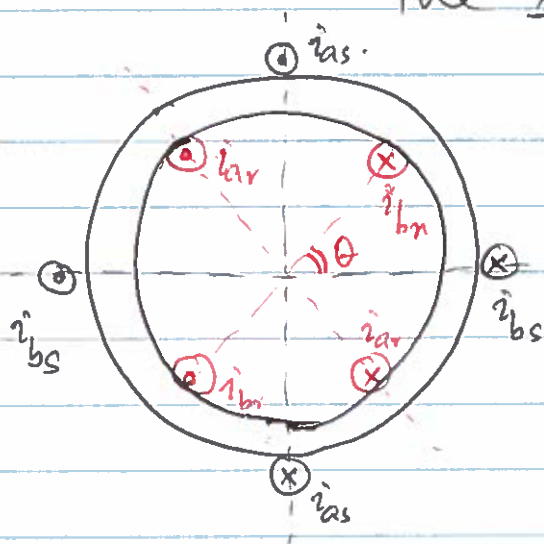 i_as.
i_ar
i_br
θ
i_bs
i_bs
i_ar
i_br
i_as